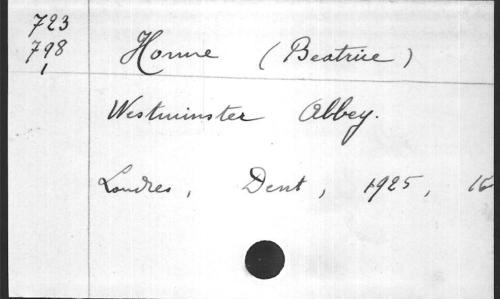 723
798
1
Horne (Beatrice)
Westminster Abbey.
Londres, Dent, 1925, 16